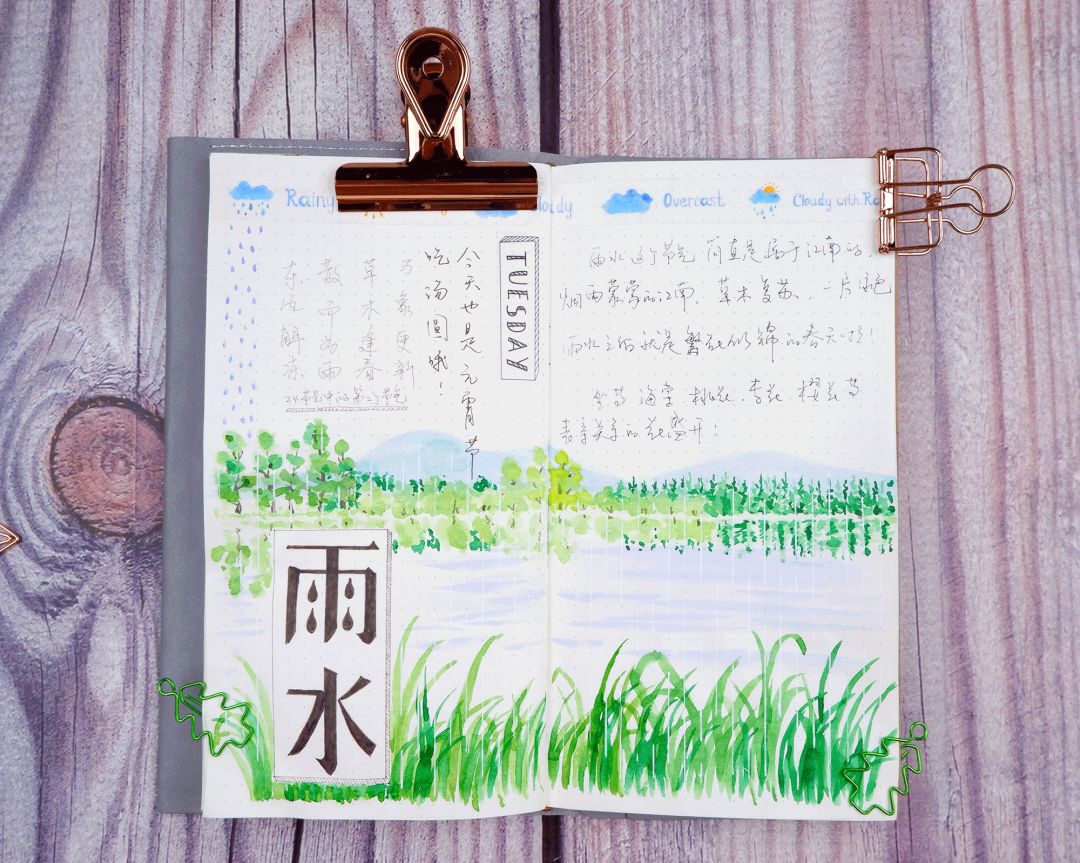 Rainy
loudy
Overcast
Cloudy with Ra
TUESDAY
今天也是元宵节
吃汤圆哦！
东风解冻
散而为雨
草木逢春
万象更新
24节气中的第2个节气
雨水
雨水这个节气简直是属于江南的，
烟雨蒙蒙的江南，草木复苏，一片绿色
雨水之后就是繁花似锦的春天啦！
坐等海棠、桃花、李花、樱花等
表亲关系的花盛开！